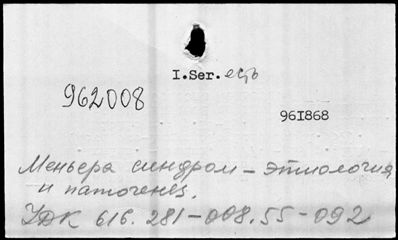 I.Ser. есть
962008
96I868
Меньера синдром – этиология
и патогенез.
УДК 616.281–008.55–092